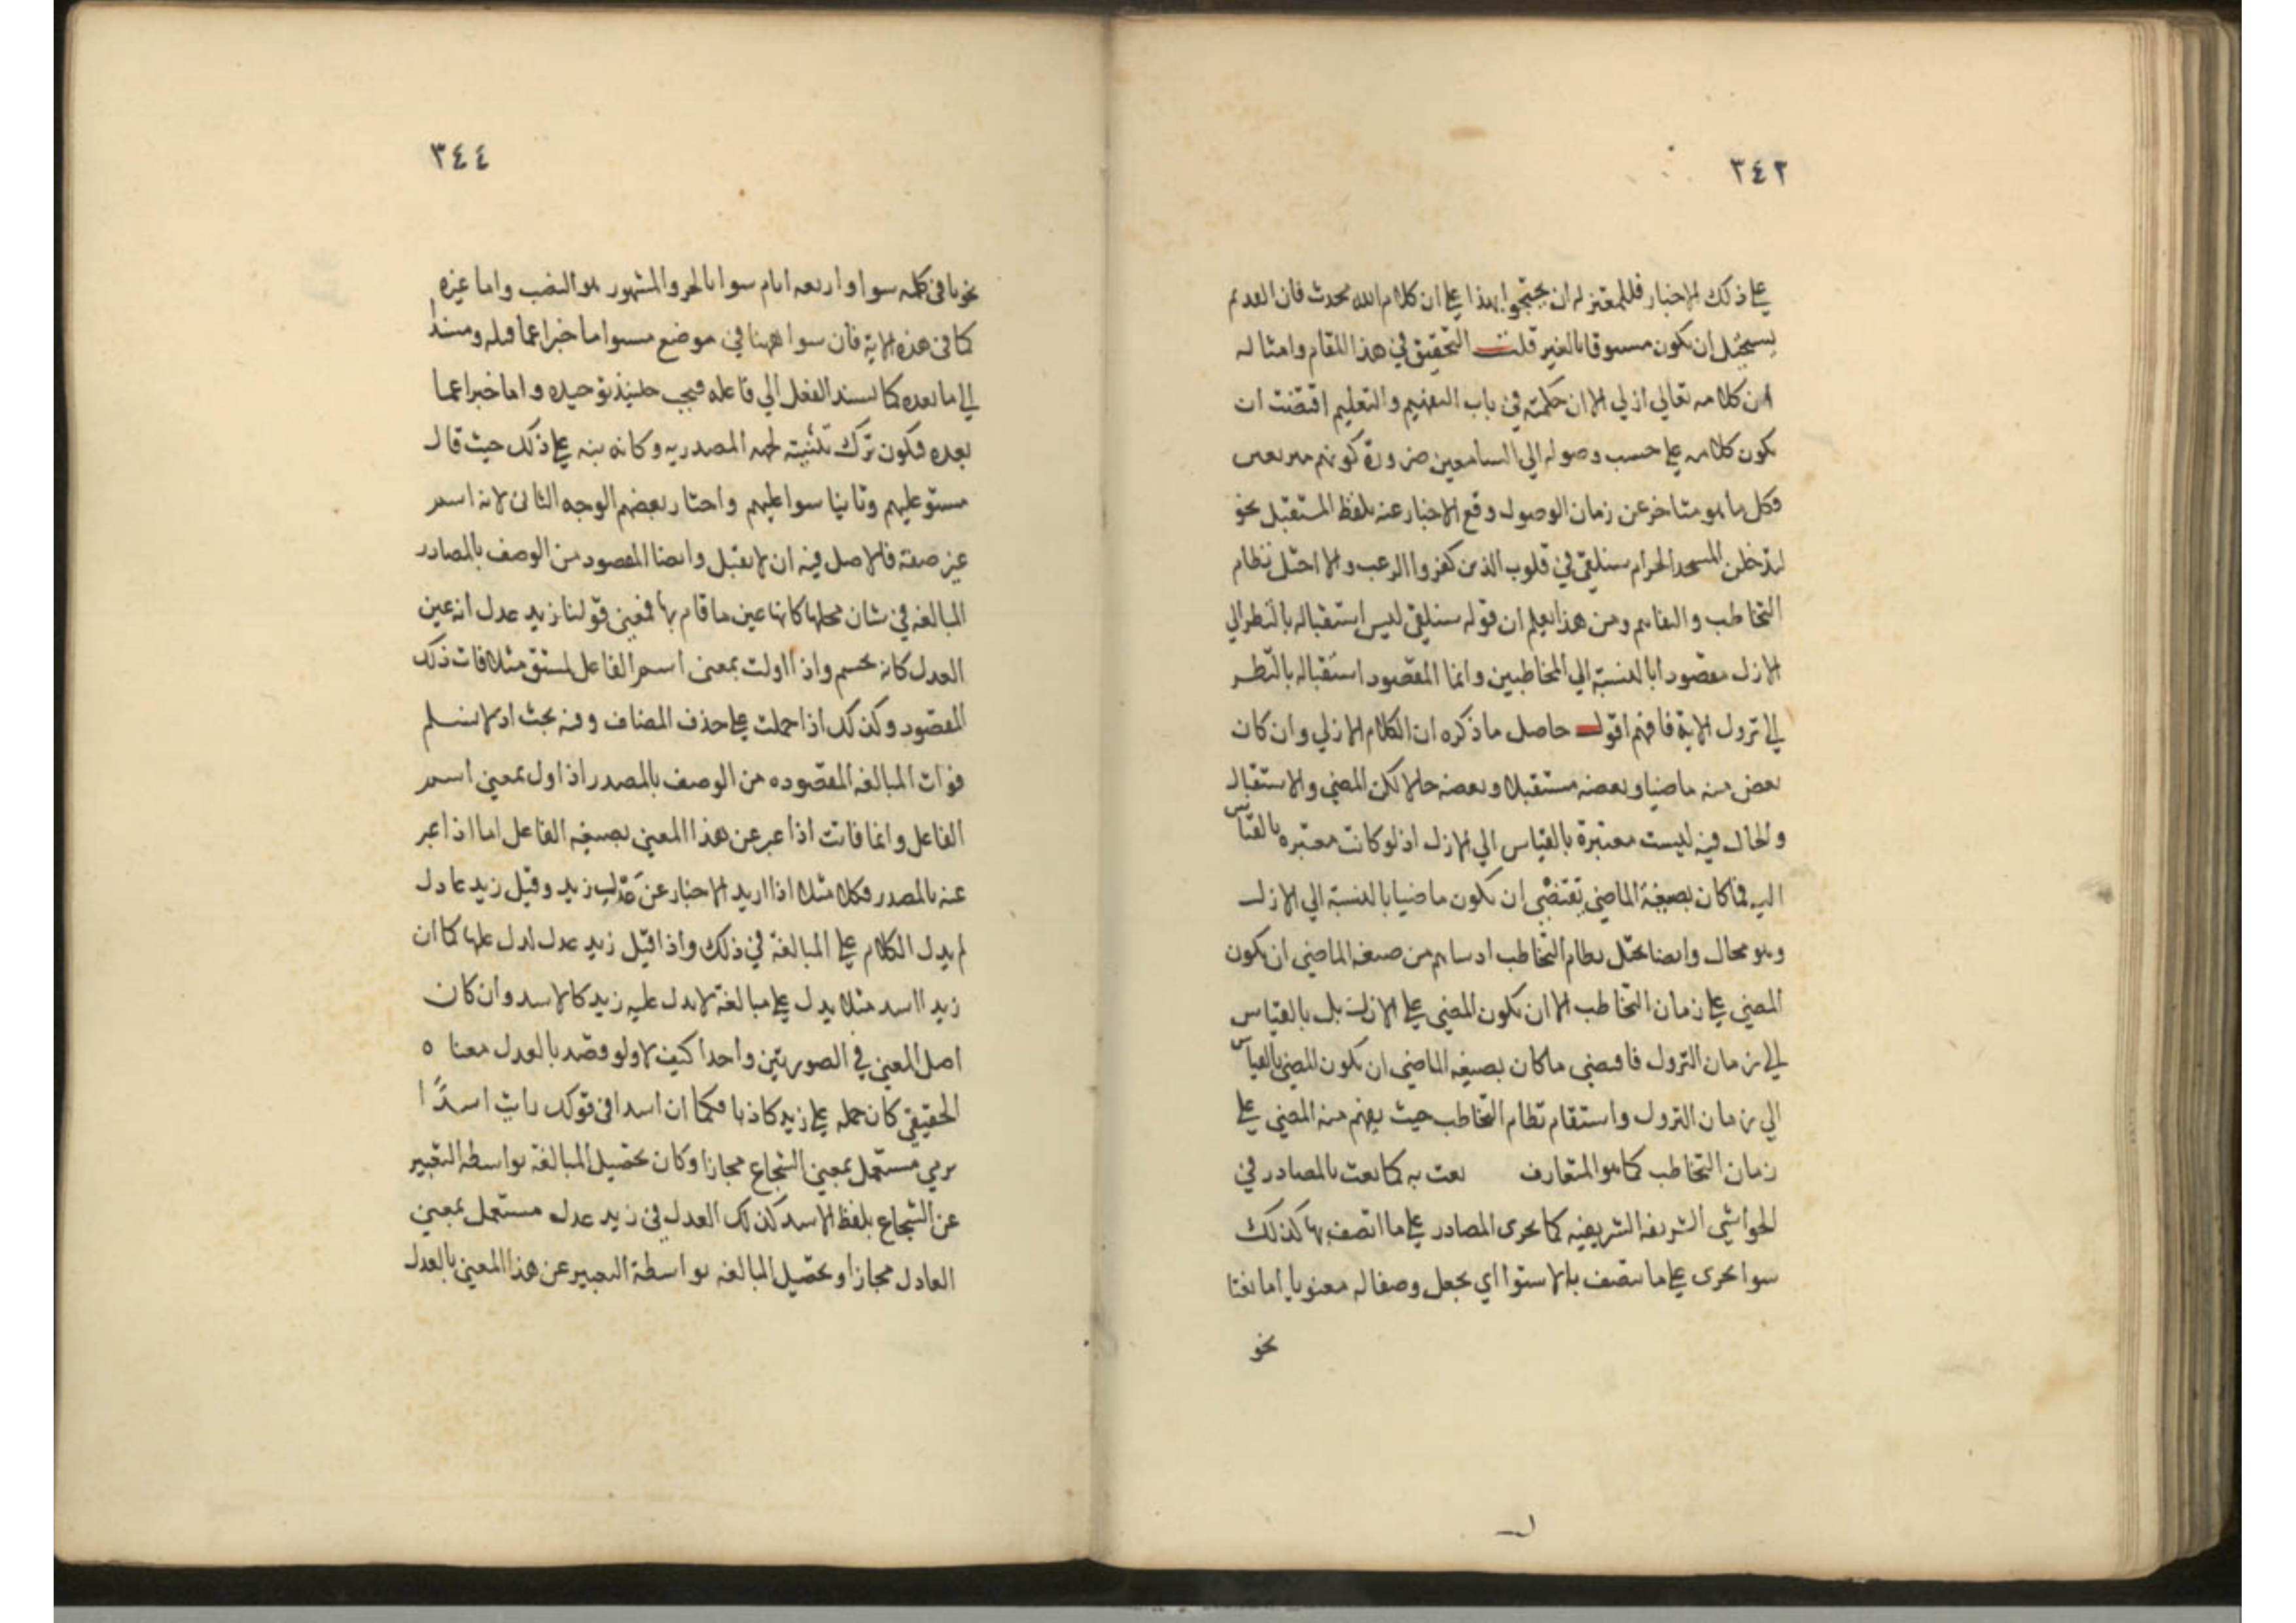 ٣٤٣
على ذلك الاخبار فللمعتزله ان يحتجوا بهذا على ان كلام الله محدث فان القديم
يستحيل ان يكون مسبوقا بالغير قلت التحقيق في هذا المقام وامثاله
ان كلامه تعالي ازلي الا ان حكمته في باب التفهيم والتعليم اقتضت ان
يكون كلامه على حسب وصوله الي السامعين ضرورة كونهم
فكل ما هو متاخر عن زمان الوصول وقع الاخبار عنه بلفظ المستقبل نحو
لتدخلن المسجد الحرام سنلقي في قلوب الذين كفروا الرعب والا اختل نظام
التخاطب والتفاهم ومن هذا يعلم ان قوله سنلقي ليس استقباله بالنظر الي
الازل مقصودا بالنسبة الي المخاطبين وانما المقصود استقباله بالنظر
الي نزول الاية فافهم اقول حاصل ما ذكره ان الكلام الازلي وان كان
بعض منه ماضيا وبعضه مستقبلا وبعضه حالا لكن المضي والاستقبال
والحال فيه ليست معتبرة بالقياس الي الازل اذ لو كانت معتبره بالقياس
اليه فما كان بصيغة الماضي يقتضي ان يكون ماضيا بالنسبة الي الازل
وهو محال وايضا يختل نظام التخاطب من صيغه الماضي ان يكون
المضي على زمان التخاطب الا ان يكون المضي على الازل بل بالقياس
الي زمان النزول فاقتضي ما كان بصيغه الماضي ان يكون المضي بالقياس
الي زمان النزول واستقام نظام التخاطب حيث يفهم منه المضي على
زمان التخاطب كما هو المتعارف نعت به كما نعت بالمصادر في
الحواشي الشريفه الشريفيه كما يجرى المصادر على ما اتصف بها كذلك
سوا يجرى على ما يتصف بالاستوا اي يجعل وصفا له معنويا اما نعتا
نحو
٣٤٤
نحويا في كلمه سوا او اربعه ايام سوا بالجر والمشهور هو النصب واما غيره
كما في هذه الاية فان سوا ههنا في موضع مستو اما خبرا عما قبله ومسندا
الي ما بعده كما يسند الفعل الي فاعله فيجب حينئذ توحيده واما خبرا عما
بعده فيكون ترك تثنيته لجهه المصدريه وكانه نبه على ذلك حيث قال
مستو عليهم وثانيا سوا عليهم واختار بعضهم الوجه الثاني لانه اسم
غير صفة فالاصل فيه ان لا يعمل وايضا المقصود من الوصف بالمصادر
المبالغه في شان محلها كانها عين ما قام بها فمعني قولنا زيد عدل انه عين
العدل كانه تجسم واذا اولت بمعني اسم الفاعل لمشتق مثلا فات ذلك
المقصود وكذلك اذا حملت على حذف المضاف وفيه بحث اذ لا نسلم
فوات المبالغه المقصوده من الوصف بالمصدر اذا اول بمعني اسم
الفاعل وانما فاتت اذا عبر عن هذا المعني بصيغه الفاعل اما اذا عبر
عنه بالمصدر فكلا مثلا اذا اريد الاخبار عن عدل زيد وقيل زيد عادل
لم يدل الكلام على المبالغة في ذلك واذا قيل زيد عدل لدل عليها كما ان
زيدا اسد مثلا يدل على مبالغة لا يدل عليه زيد كالاسد وان كان
اصل المعني في الصورتين واحدا كيف لا ولو قصد بالعدل معناه
الحقيقي كان حمله على زيد كاذبا فكما ان اسدا في قولك رايت اسدا
يرمي مستعمل بمعني الشجاع مجازا وكان تحصيل المبالغة بواسطه التعبير
عن الشجاع بلفظ الاسد كذلك العدل في زيد عدل مستعمل بمعني
العادل مجازا وتحصيل المبالغه بواسطة التعبير عن هذا المعني بالعدل